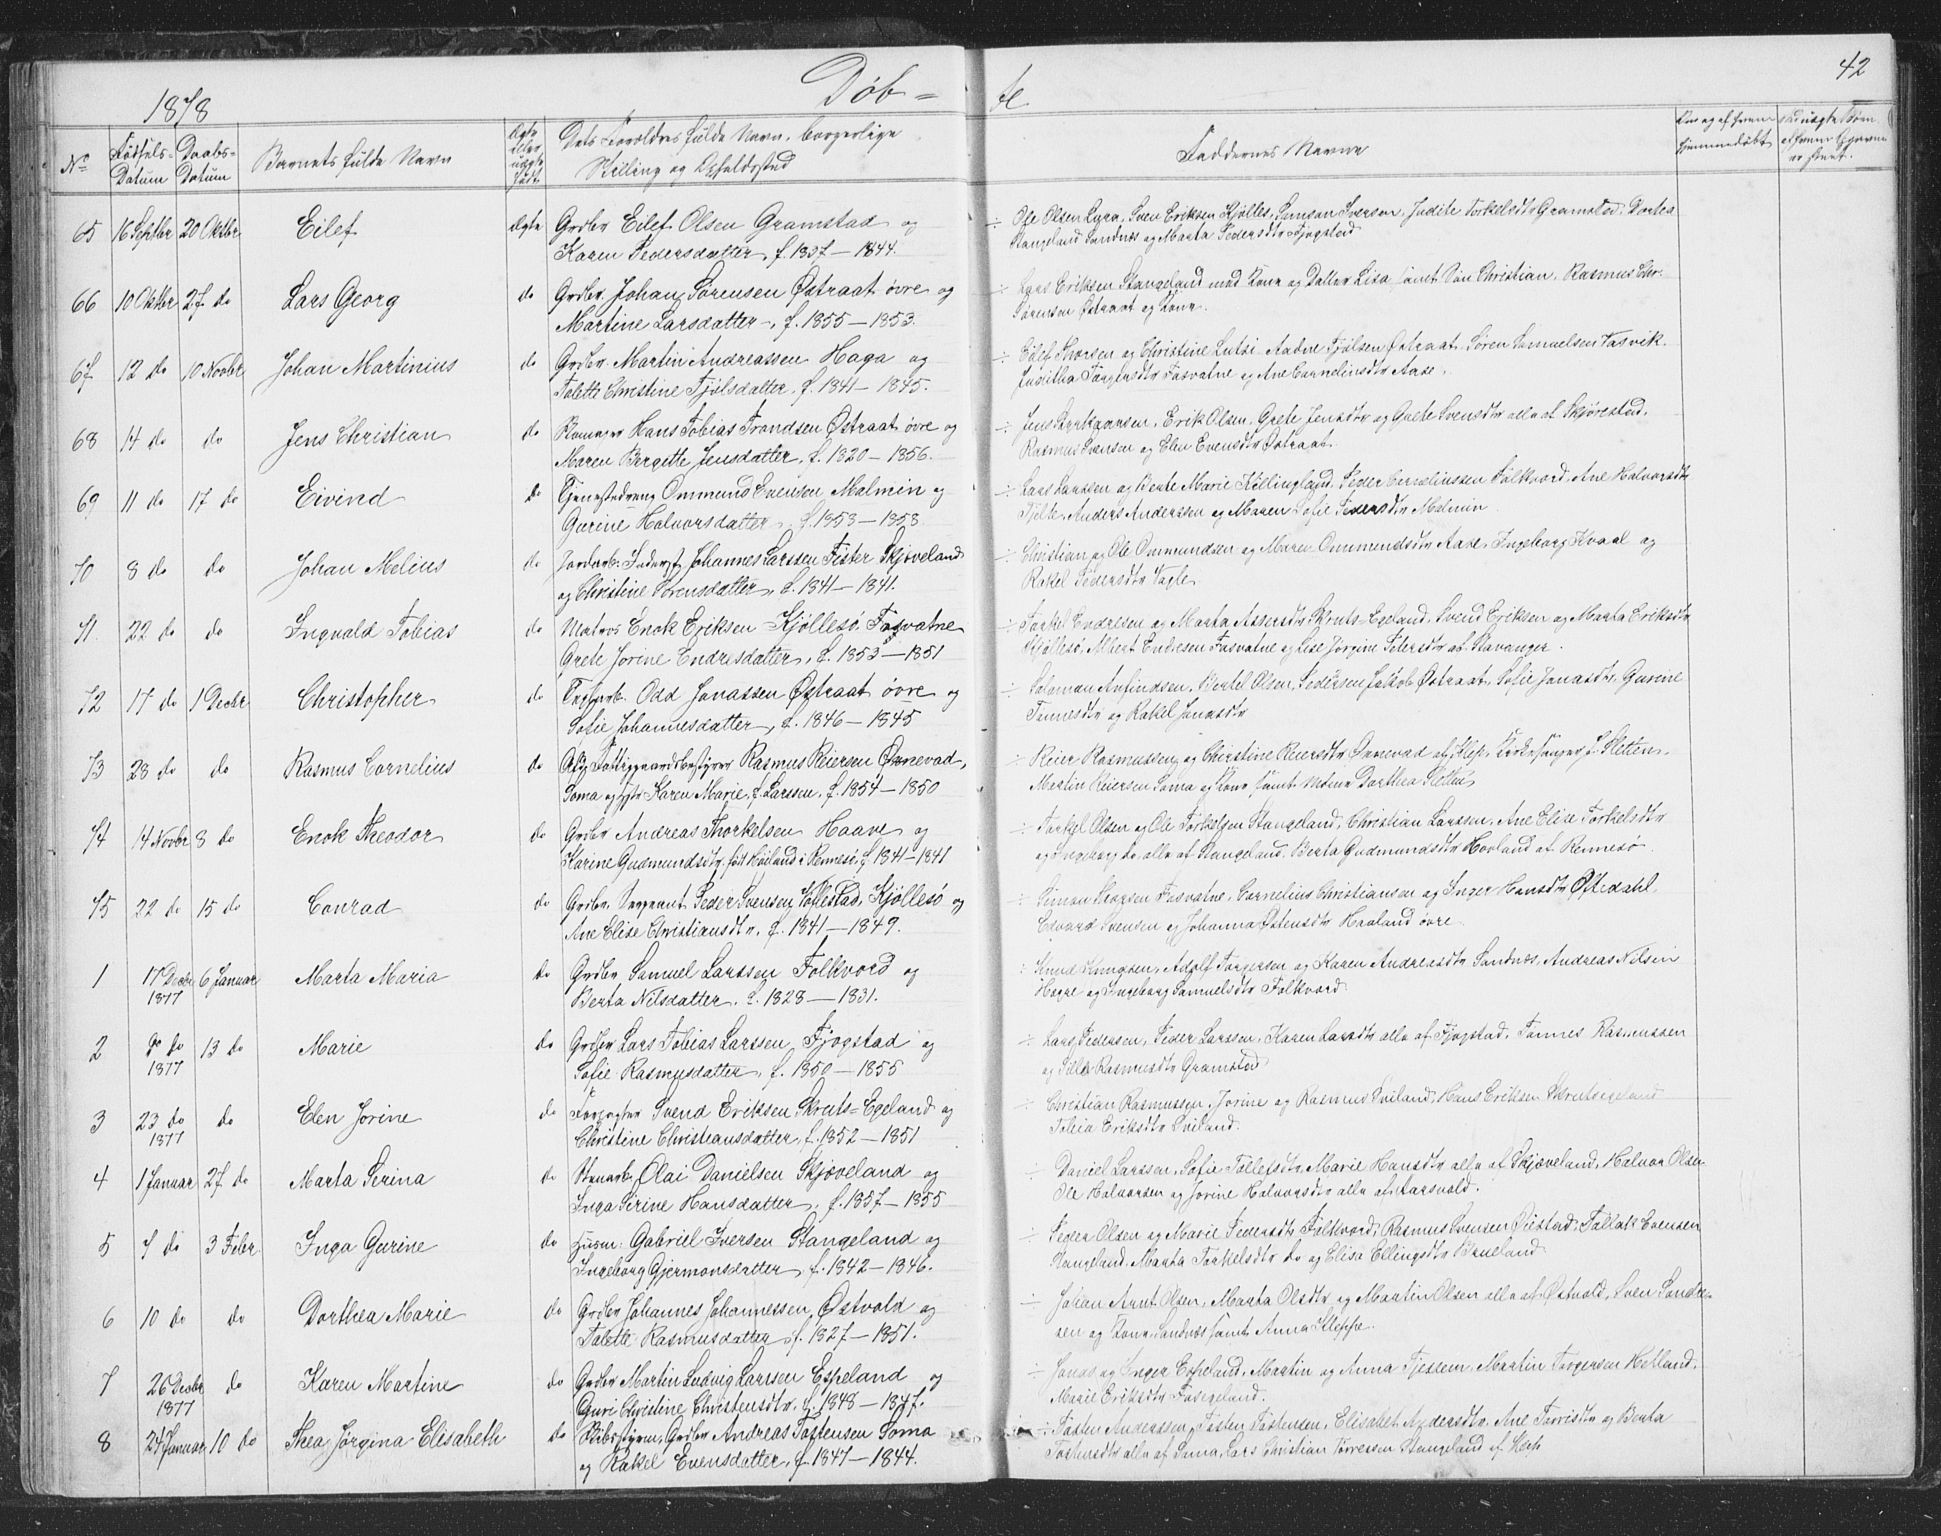 42
1878
Døb = te
No
Fødsels-Datum
Daabs-Datum
Barnets fulde Navn
Ægte eller uægte født
Dets Forældres fulde Navn, borgerlige
Stilling og Opholdssted
Faddernes Navne
65 16 Septbr 20 Oktbr Eilef Ægte Grdbr Eilef Olsen Gramstad og
Karen Pedersdatter, f. 1837 — 1844.
÷ Ole Olsen Lura, Sven Eriksen Kjölles, Samson Iversen, Judite Torkelsdtr Gramstad, Dortea
Stangeland Sandnæs og Marta Pedersdtr Fjogstad
66 10 Oktbr 27 do Lars Georg do Grdbr Johan Sørensen Østraat øvre og
Martine Larsdatter, f. 1855 — 1853.
÷ Lars Eriksen Stangeland med Kone og Datter Lisa, samt Søn Christian, Rasmus Chr.
Sørensen Østraat og Kone.
67 12 do 10 Novbr Johan Martinius do Grdbr Martin Andreassen Haga og
Talette Christine Tjølsdatter, f. 1841 — 1845.
÷ Eilef Thorsen og Christine Lutsi, Aadne Tjølsen Østraat, Søren Samuelsen Vasvik.
68 14 do do Jens Christian do Hans Tobias Trondsen Østraat øvre og
Maren Bergitte Jensdatter, f. 1820 — 1856.
÷ Erik Olsen, Grete Jensdtr og Gaete Svensdtr alle af Skjørestad,
Rasmus Svensen og Elen Evensdtr Østraat.
69 11 do 17 do Eivind do Tjenestedreng Ommund Evensen Malmin og
Gurine Halvorsdatter, f. 1853 — 1853
÷ Lars Larssen og Berte Marie Kyllingland, Peder Cornelinssen Folkvord, Ane Halvorsdtr
Tjelte, Anders Anderssen og Maren Sofie Pedersdtr Malmin.
70 8 do do Johan Melius do Johannes Larssen Fister Skjæveland
og Christine Sørensdatter, f. 1841 — 1841.
÷ Christian og Ole Ommundsen og Maren Ommundsdtr Aase, Ingeborg Kvaal og
Rakel Pedersdtr Vagle
71 22 do do Ingvald Tobias do Matros Enok Eriksen Kjøllesø, Fosvatne
Grete Jorine Endresdatter, f. 1853 — 1851
÷ Torkel Endresen og Marta Assersdtr Skruts-Egeland, Svend Eriksen og Marta Eriksdtr
Kjøllesø, Albert Endresen Fosvatne og Lise Jørgine Petersdtr af Stavanger.
72 17 do 1 Decbr Christopher do Odd Jonassen Østraat øvre og
Sofie Johannesdatter, f. 1846 — 1845
÷ Salomon Anfindsen, Bertel Olsen, Pedersen Jakob Østraat, Sofie Jonasdtr Gurine
Tønnesdtr og Rakel Jonasdtr
73 28 do do Rasmus Cornelius do Fattiggaardsbestyrer Rasmus Reiersen Ønnevad,
Soma og Karen Marie, f. Larssen, f. 1854 — 1850
÷ Reier Rasmussen og Christine Reiersdtr Ønnevad af Klep, Kirkesanger S. Sletten,
Martin Reiersen Soma og Kone samt Dorthea Sletten
74 14 Novbr 8 do Enok Theodor do Grdbr Andreas Thorkelsen Haave og
Karine Gudmundsdtr født Høiland i Rennesø, f. 1841 — 1841
÷ Torkel Olsen og Ole Torkelsen Stangeland, Christian Larssen, Ane Elise Torkelsdtr
og Ingeborg do alle af Stangeland, Berta Gudmundsdtr Hovland af Rennesø.
75 22 do 15 do Conrad do Grdbr Sergeant Peder Svensen Kjøllesø og
Ane Elise Christiansdtr, f. 1841 — 1849.
÷ Simon Fosvatne, Cornelius Christiansen og Inger Hansdtr Oftedahl,
Edvard Svensen og Johanna Østensdtr Haaland øvre
1 17 Decbr 1877 6 Januar Marta Maria do Grdbr Samuel Larssen Folkvord og
Berta Nilsdatter, f. 1828 — 1831.
÷ Knud Knudsen, Adolf Torgersen og Karen Andreasdtr Sandnæs, Andreas Nilsen
og Ingeborg Samuelsdtr Folkvord.
2 do 1877 13 do Marie do Grdbr Lars Tobias Larssen Fjogstad og
Sofie Rasmusdatter, f. 1850 — 1855
÷ Lars Pedersen, Peder Larssen, Karen Larsdtr alle af Fjogstad, Tønnes Rasmussen
og Rasmusdtr Gramstad
3 23 do 1877 do Elen Jorine do Forpagter Svend Eriksen Skruts-Egeland og
Christine Christiansdatter, f. 1852 — 1851
÷ Christian Rasmussen, Jorine og Rasmus Sviland, Hans Eriksen Skrutsegeland
Eriksdtr Sviland.
4 1 Januar 27 do Marta Serina do Olai Danielsen Skjæveland og
Inga Serine Hansdatter, f. 1857 — 1855
÷ Daniel Larssen, Sofie Tollefsdtr, Marie Hansdtr alle af Skjæveland, Halvor Olsen
Ole Halvorsen og Jorine Halvorsdtr alle af Aarsvold.
5 7 do 3 Febr Inga Gurine do Husm. Gabriel Iversen Stangeland og
Ingeborg Gjermonsdatter, f. 1842 — 1846.
÷ Peder Olsen og Marie Pedersdtr Folkvord, Rasmus Svensen Øiestad, Tollak Evensen
Stangeland, Marta Torkelsdtr do og Elisa Ellingsdtr Brueland
6 10 do do Dorthea Marie do Grdbr Johannes Johannessen Østvold og
Talette Rasmusdatter, f. 1827 — 1851.
÷ Johan Arnt Olsen, Marta Olsdtr og Martin Olsen alle af Østvold, Sven
sen og Kone, Sandnæs samt Anna Kleppe.
7 26 Decbr 1877 do Karen Martine do Grdbr Martin Ludvig Larssen Espeland og
Guri Christine Christensdtr, f. 1848 — 1847.
÷ Jonas og Inger Espeland, Martin og Anna Tjessem, Martin Torgersen Hetland,
Marie Eriksdtr Fosegeland.
8 24 Januar 10 do Thea Jørgina Elisabeth do Grdbr Andreas Tostensen Soma
og Rakel Evensdatter, f. 1847 — 1844.
÷ Tosten Anderssen, Tosten Tostensen, Elisabet Andersdtr, Ane Torrisdtr og Berta
Tostensdtr alle af Soma, Lars Christian Torressen Stangeland af Klep